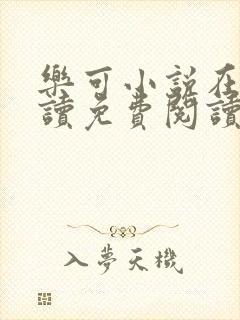 樂可小說在
讀免費閱讀
入夢天機